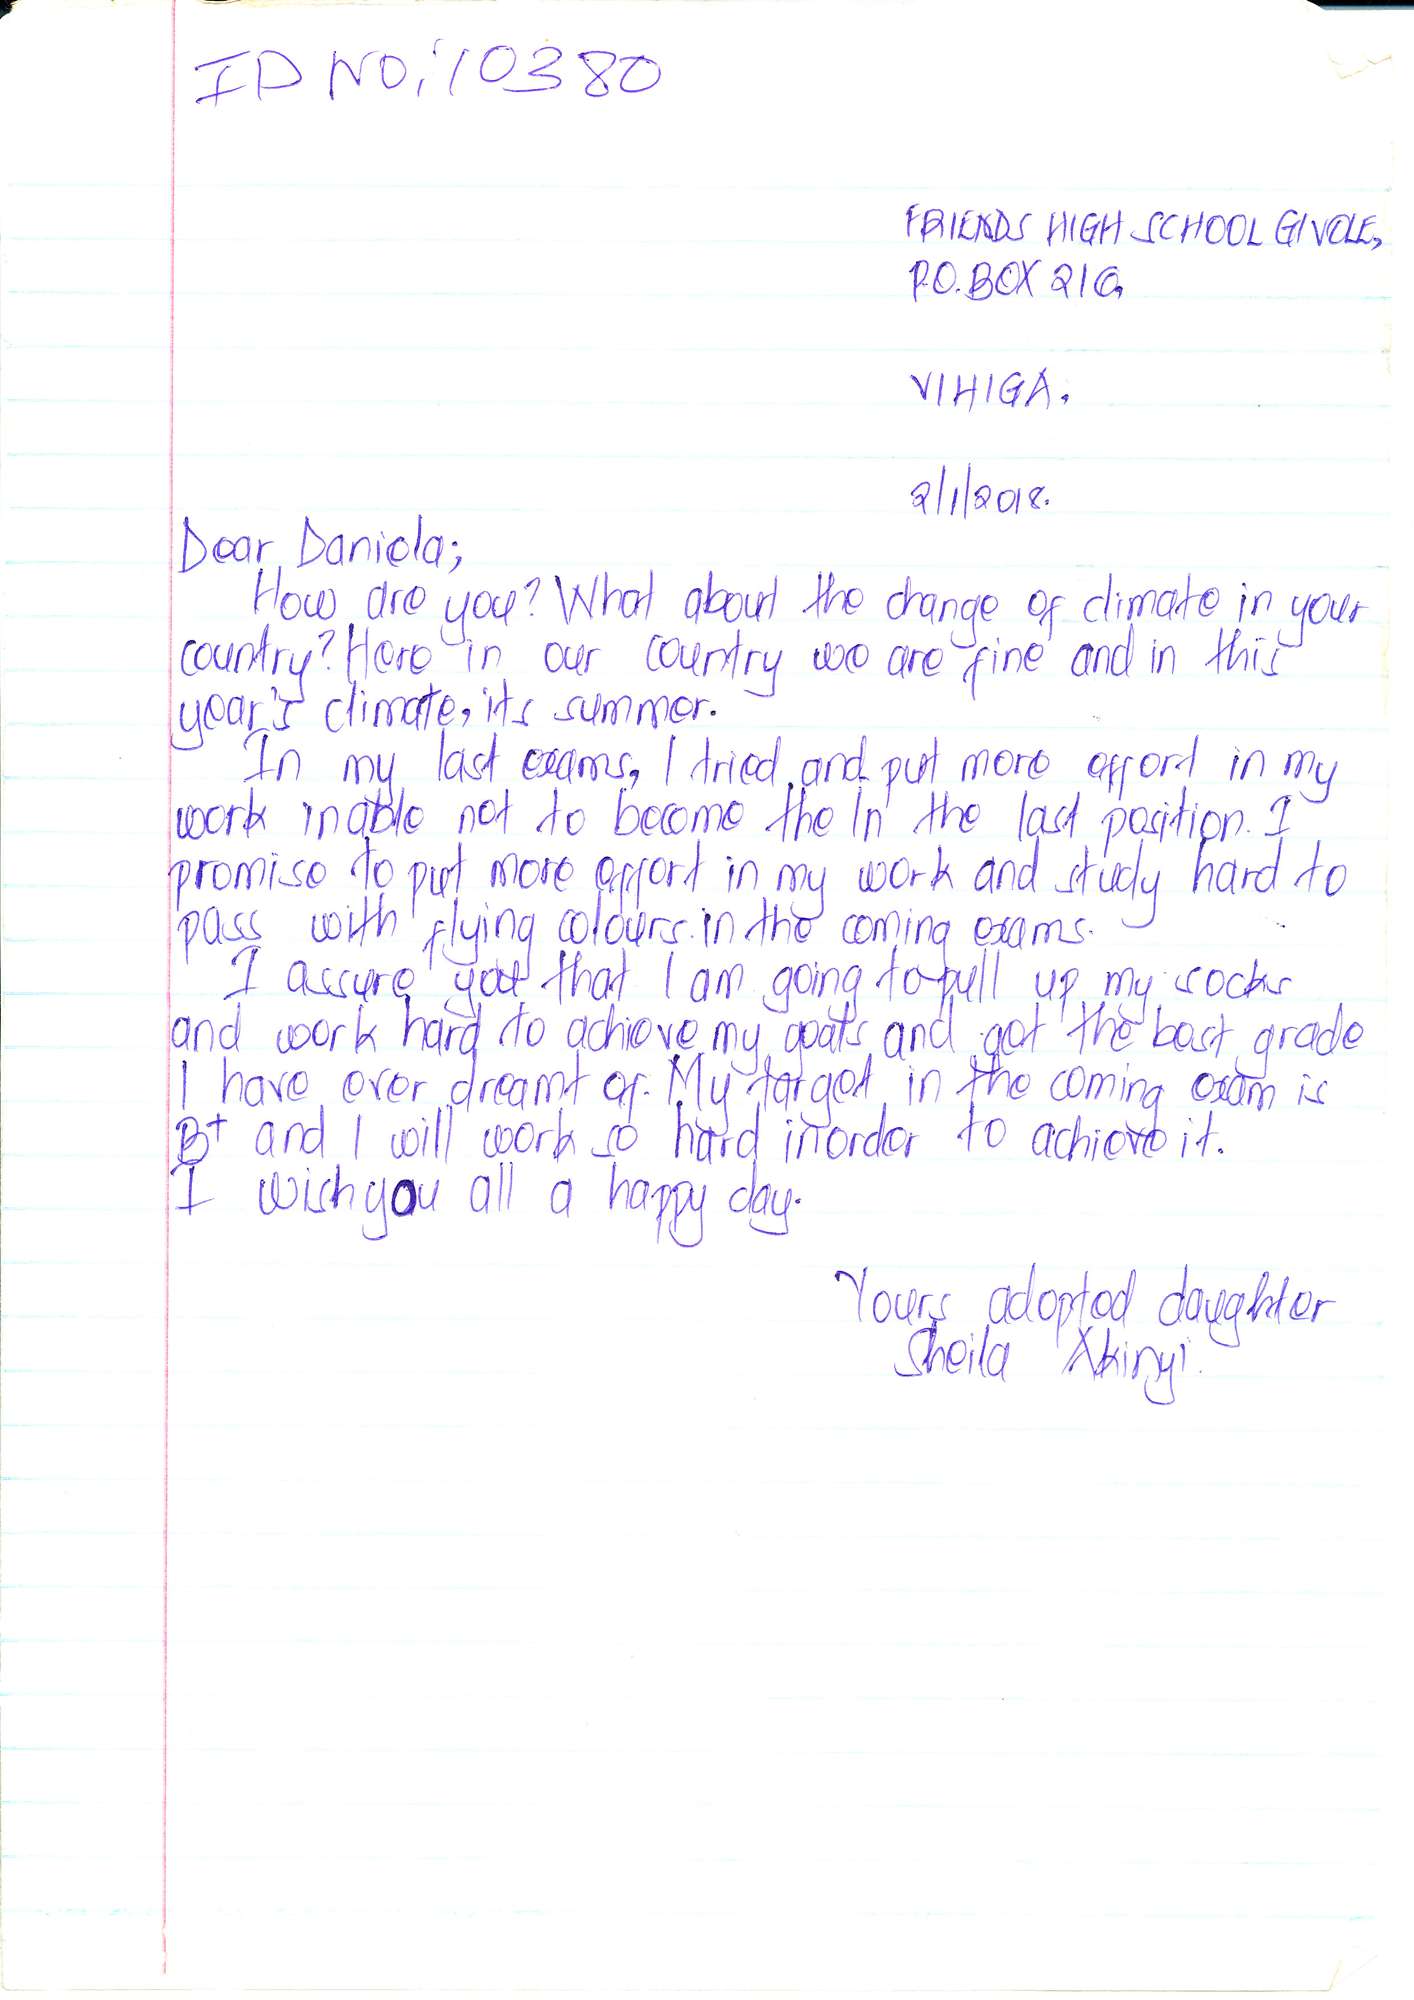 ID NO: 10380
FRIENDS HIGH SCHOOL GIVOLE,
P.O. BOX 210,
VIHIGA.
2/1/2018.
Dear Daniela;
How are you? What about the change of climate in your
country? Here in our country we are fine and in this
year's climate, its summer.
In my last exams, I tried and put more effort in my
work inable not to become the In the last position. I
promise to put more effort in my work and study hard to
pass with flying colours in the coming exams.
I assure you that I am going to pull up my socks
and work hard to achieve my goals and get the best grade
I have ever dreamt of. My target in the coming exam is
B+ and I will work so hard inorder to achieve it.
I wish you all a happy day.
Yours adopted daughter
Sheila Akinyi.